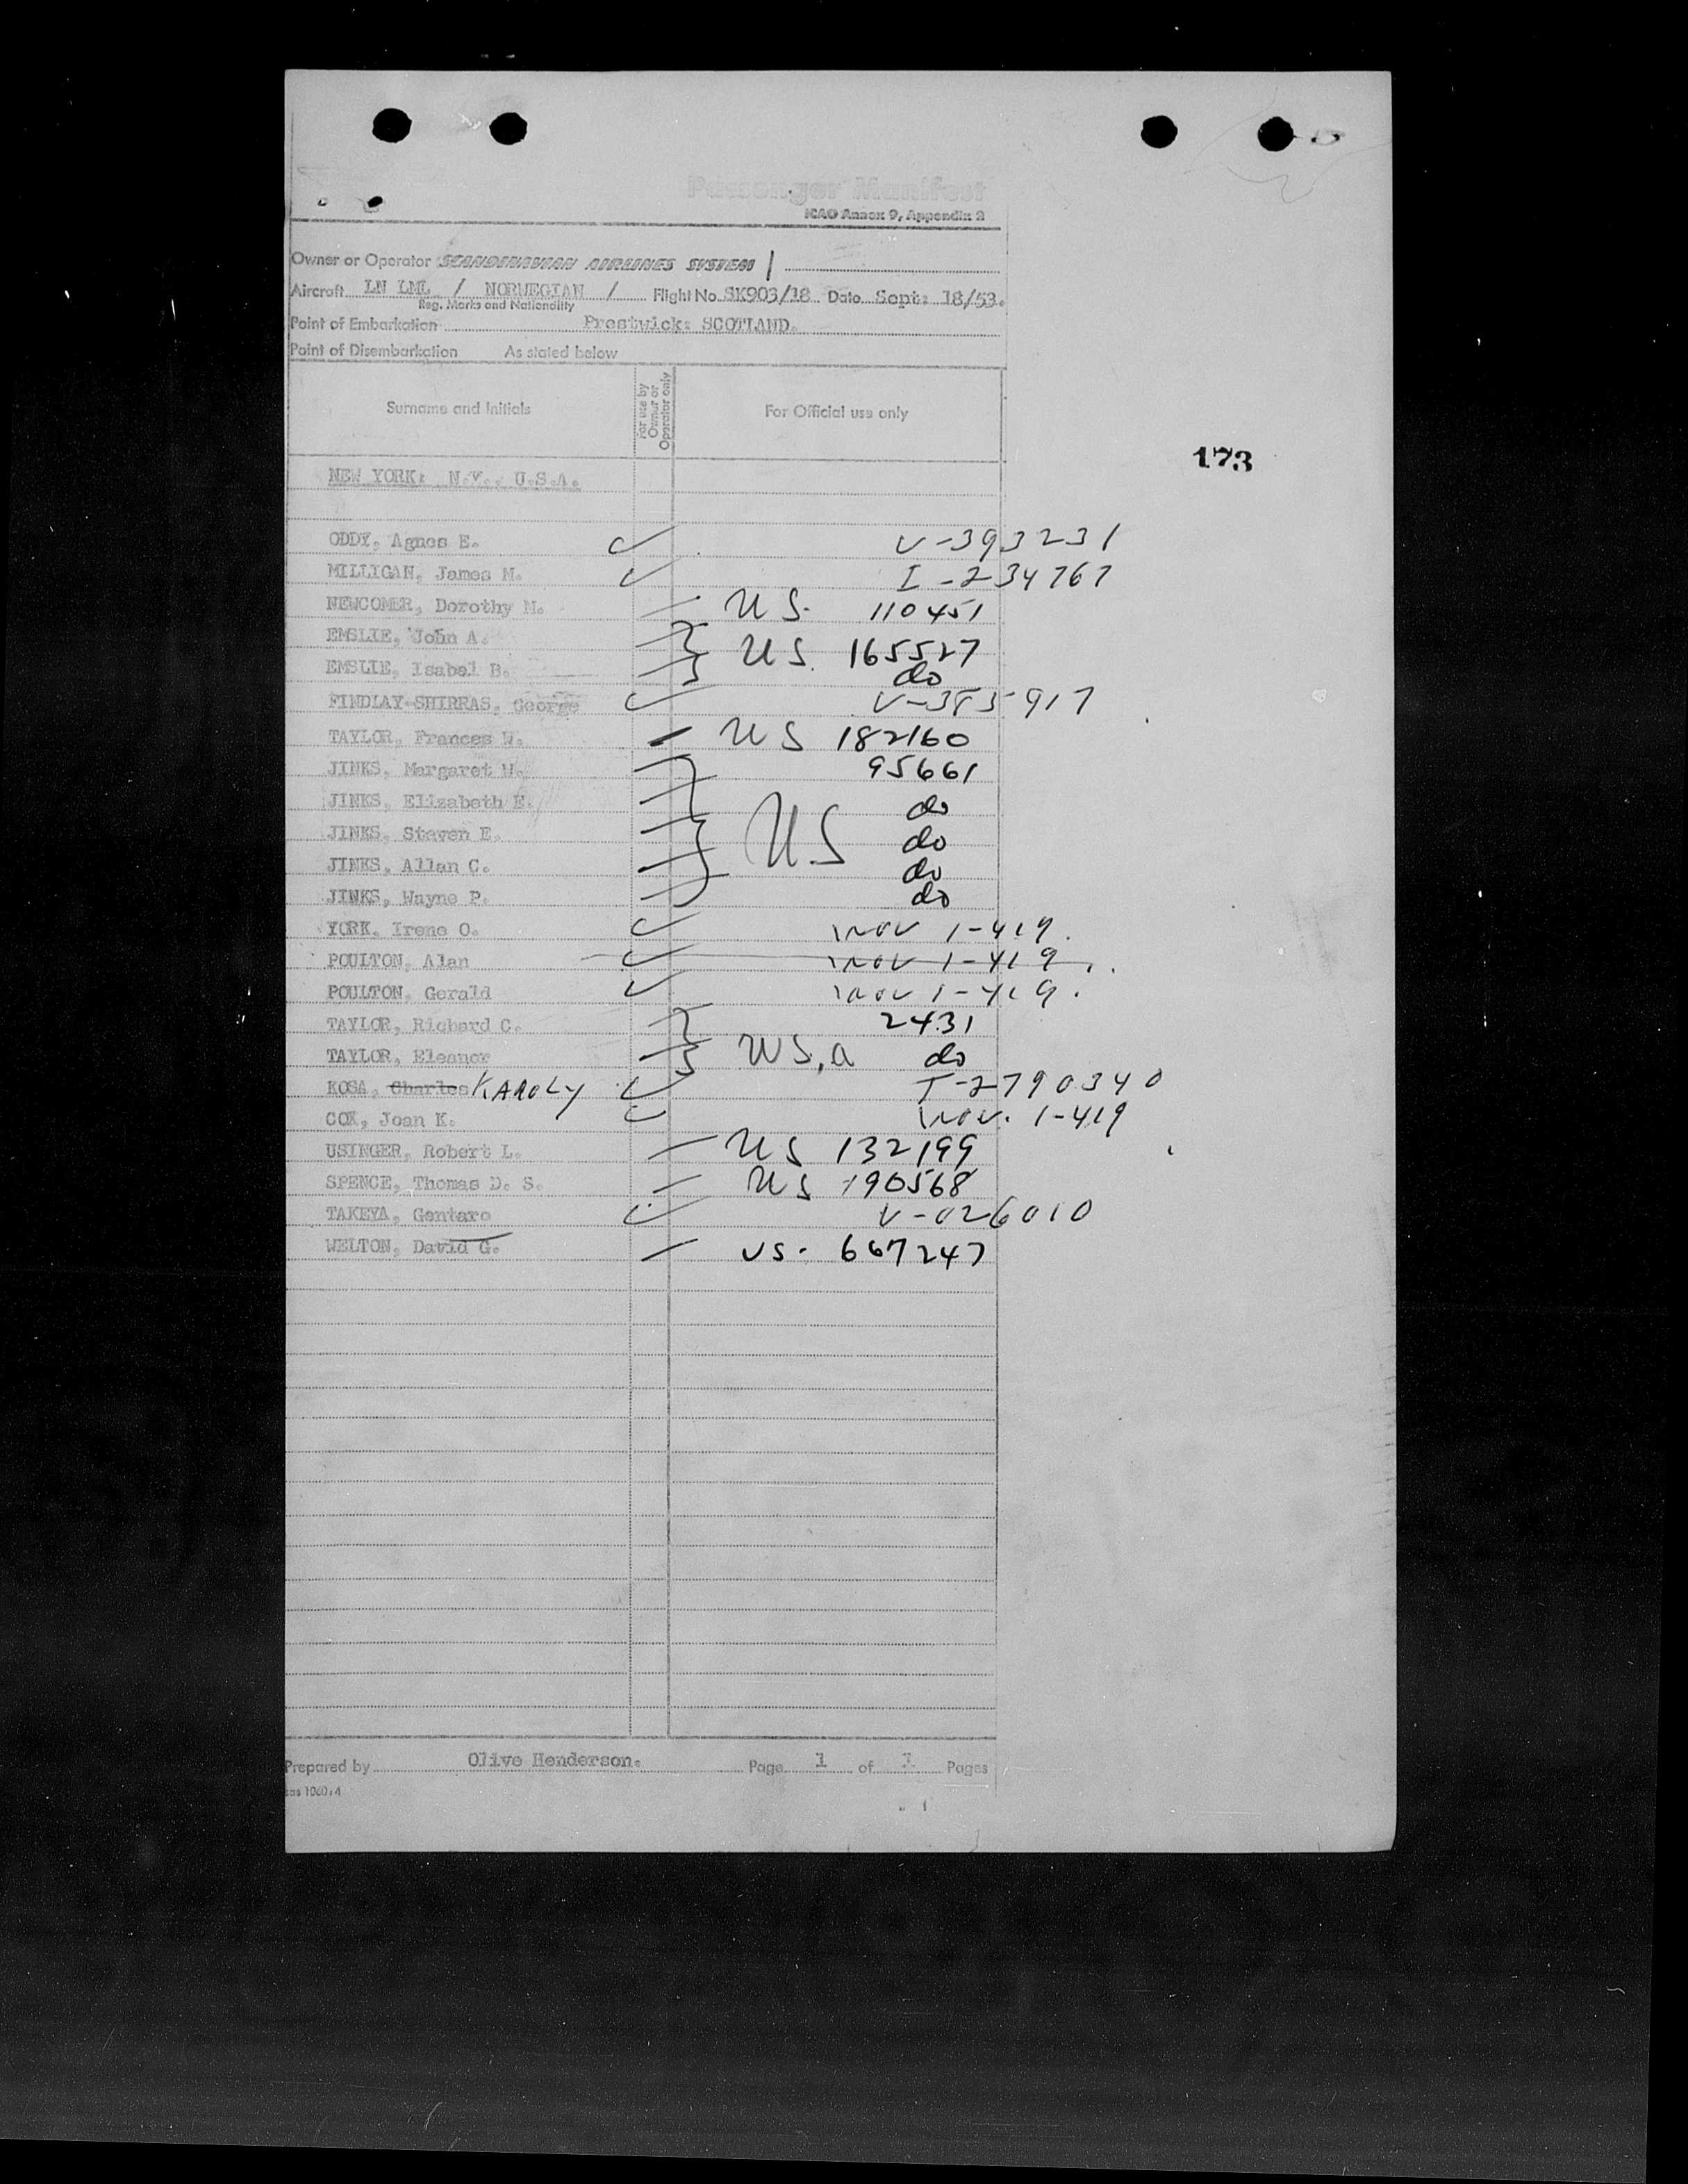 Passenger Manifest
ICAO Annex 9, Appendix 2
Owner or Operator SCANDINAVIAN AIRLINES SYSTEM
Aircraft LN LML / NORWEGIAN / Flight No. SK903/18 Date Sept: 18/53.
Reg. Marks and Nationality
Point of Embarkation Prestwick: SCOTLAND.
Point of Disembarkation As stated below
Surname and Initials For use by Owner or Operator only For Official use only
173
NEW YORK: N.Y., U.S.A.
ODDY, Agnes E. V-393231
MILLIGAN, James M. I-234767
NEWCOMER, Dorothy M. US. 110451
EMSLIE, John A. US. 165527
EMSLIE, Isabel B. do
FINDLAY-SHIRRAS, George V-385917
TAYLOR, Frances W. US 182160
JINKS, Margaret W. 95661
JINKS, Elizabeth E. do
JINKS, Steven E. US do
JINKS, Allan C. do
JINKS, Wayne P. do
YORK, Irene O. 1-419.
POULTON, Alan 1-419.
POULTON, Gerald 1-419.
TAYLOR, Richard C. 2431
TAYLOR, Eleanor US,a do
KOSA, Charles KAROLY T-2790340
COX, Joan K. 1-419
USINGER, Robert L. US 132199
SPENCE, Thomas D. S. US 190568
TAKEYA, Gentaro V-026010
WELTON, David G. US. 667247
Prepared by Olive Henderson. Page 1 of 1 Pages
sas 1060:4